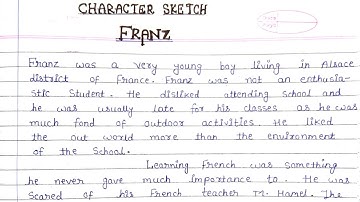 CHARACTER SKETCH
FRANZ
Franz was a very young boy living in Alsace
district of France. Franz was not an enthusia-
stic student. He disliked attending school and
he was usually late for his classes as he was
much fond of outdoor activities. He liked
the out world more than the environment
of the School.
Learning French was something
he never gave much importance to. He was
scared of his French teacher M. Hamel. The